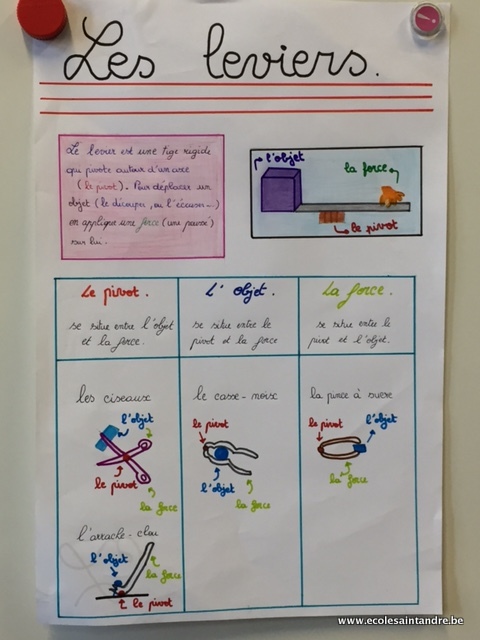 Les leviers.
Le levier est une tige rigide
qui pivote autour d'un axe
(le pivot). Pour déplacer un
objet (le découper, ou l'écraser...)
on applique une force (une poussé)
sur lui.
l'objet
la force
le pivot
Le pivot.
se situe entre l'objet
et la force.
L'objet.
se situe entre le
pivot et la force
La force.
se situe entre le
pivot et l'objet.
les ciseaux
l'objet
le pivot
la force
l'arrache-clou
l'objet
la force
le pivot
le casse-noix
le pivot
l'objet
la force
la pince à sucre
le pivot
l'objet
la force
www.ecolesaintandre.be